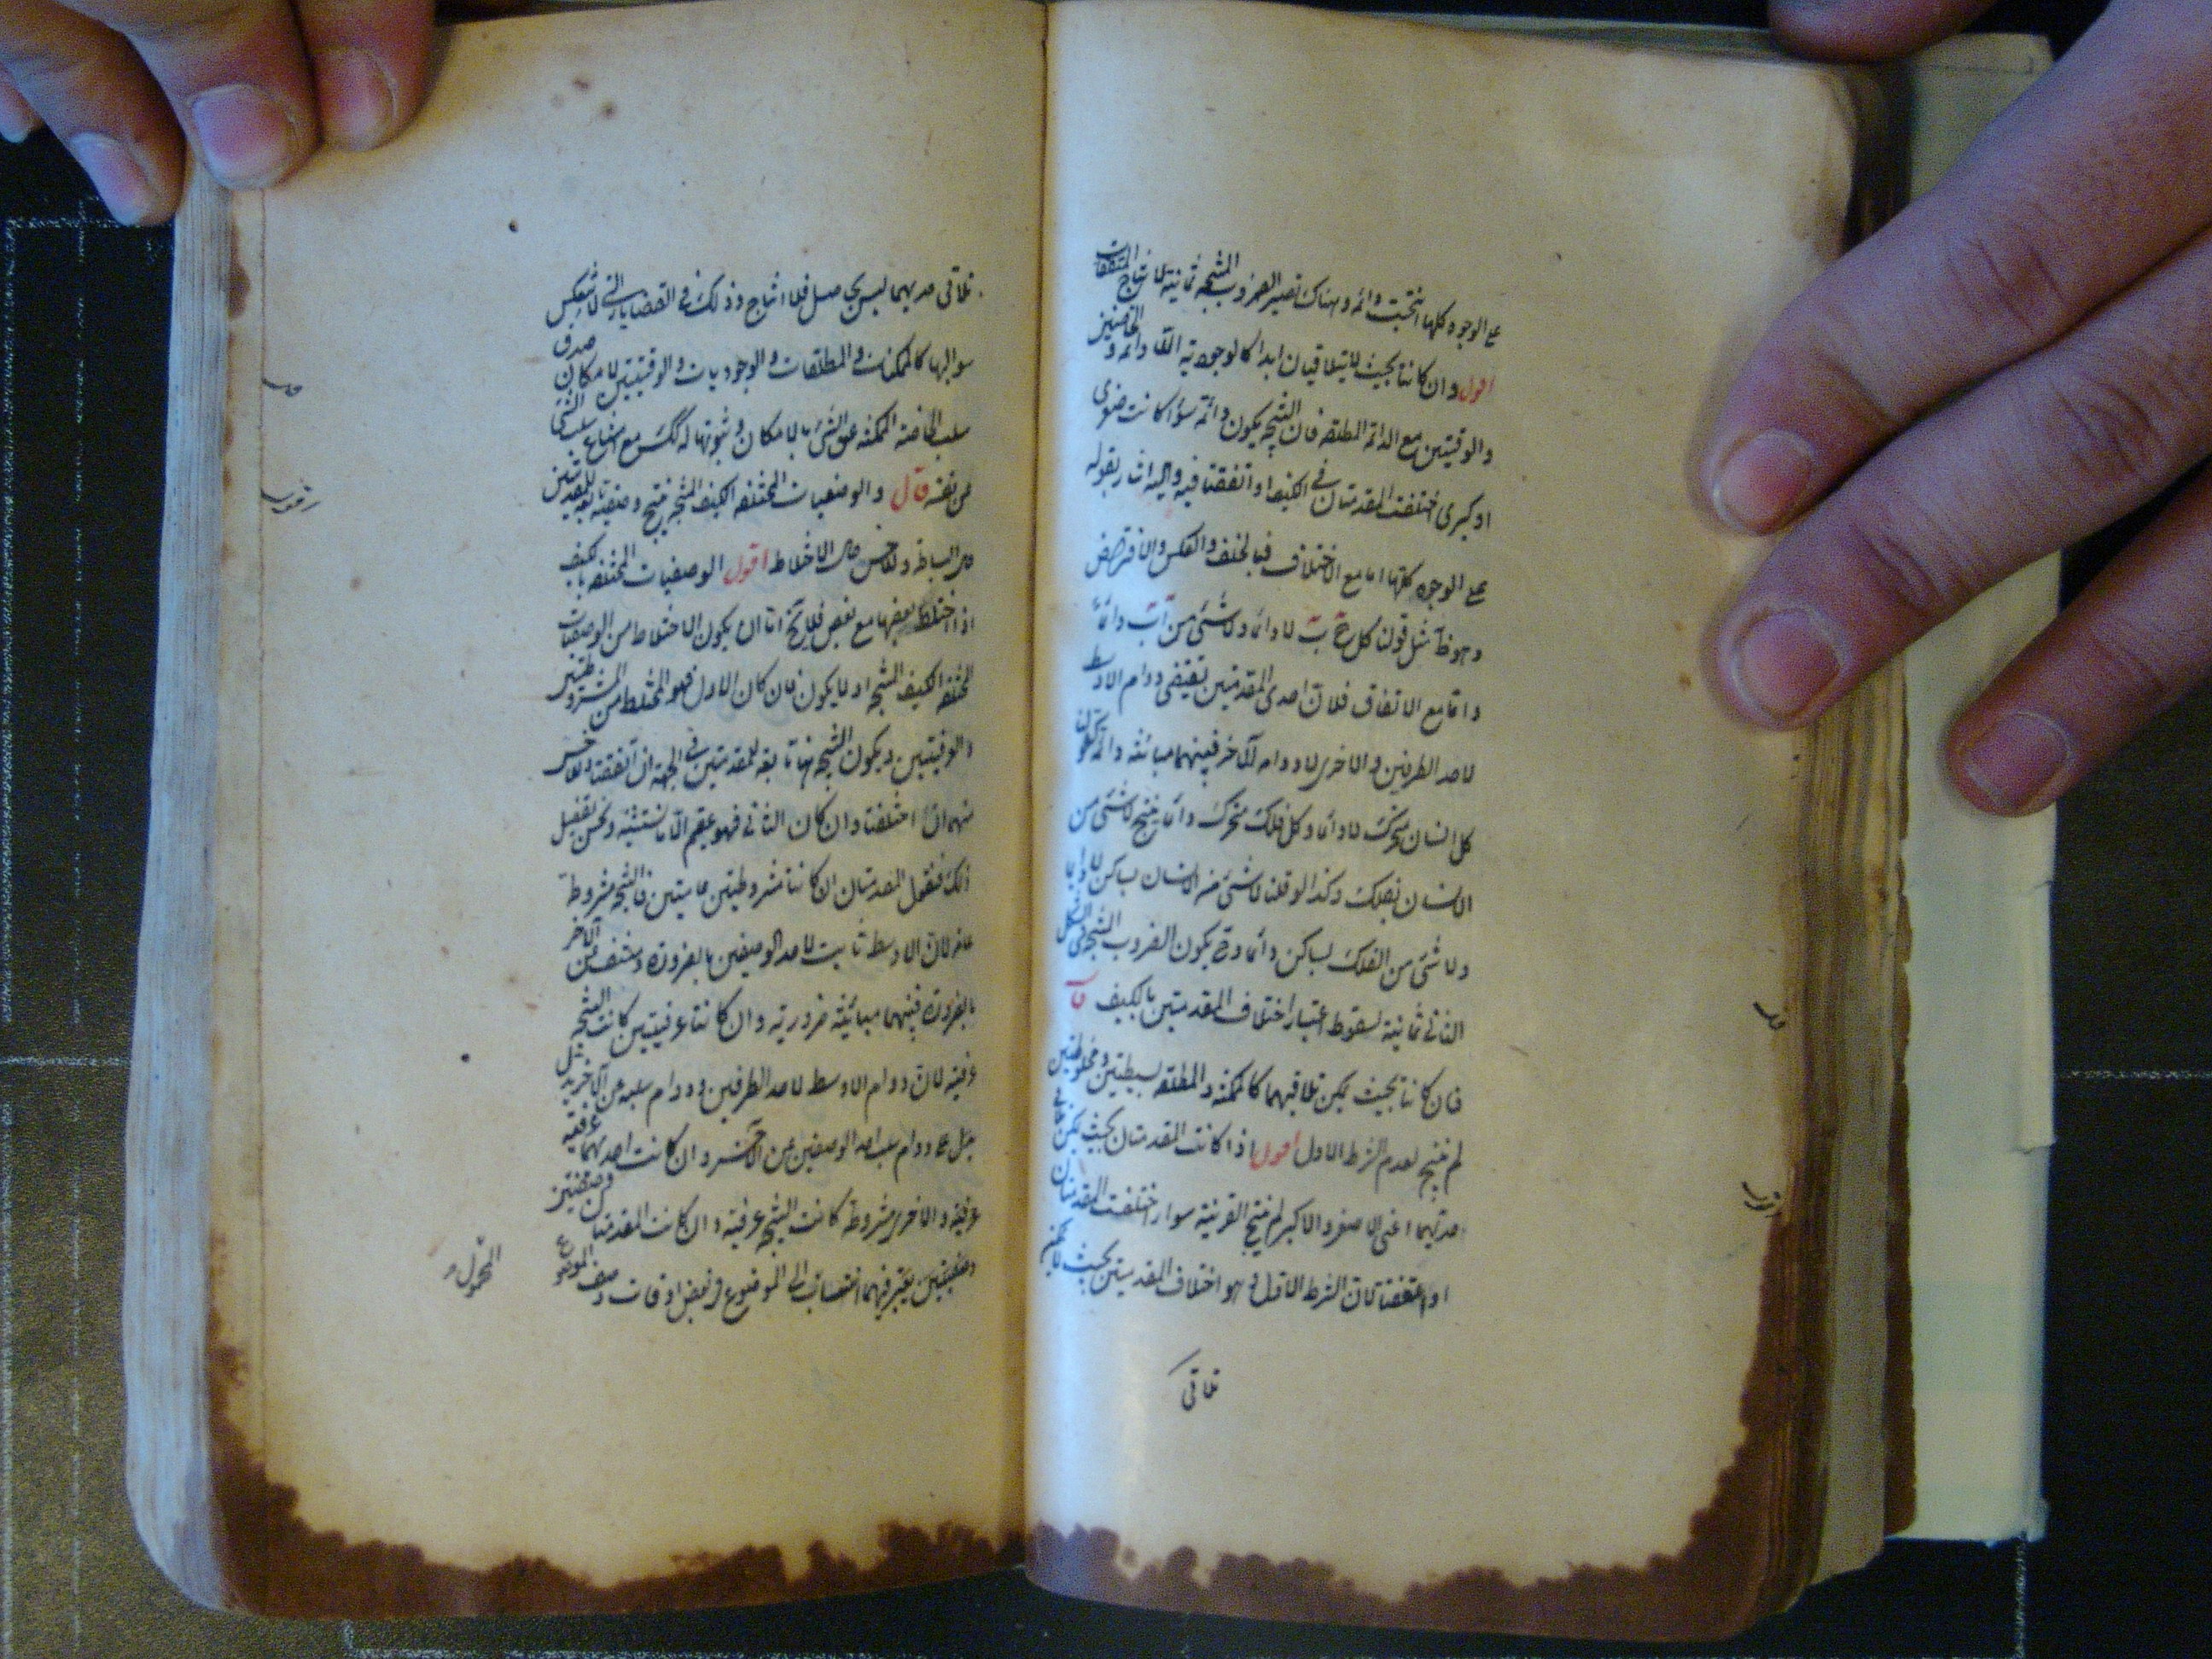 على الوجوه كلها انتجت دائمة وهناك تصير الضروب المنتجة ثمانية لانتاج المتفقات
اقول وان كانتا بحيث لا يتلاقيان ابدا كالوجودية اللا دائمة و الخاصتين
والوقتيتين مع الدائمة المطلقة فان النتيجة يكون دائمة سواء كانت صغرى
او كبرى اختلفت المقدمتان في الكيف او اتفقتا فيه واليه اشار بقوله
على الوجوه كلها اما مع الاختلاف فبالخلف والعكس والافتراض
وهو ظ مثل قولنا كل ج ب لا دائما ولا شئ من آ ب دائما
واما مع الاتفاق فلان احدى المقدمتين تقتضى دوام الاوسط
لاحد الطرفين والاخرى لا دوامه للآخر فبينهما مباينة دائمة كقولنا
كل انسان متحرك لا دائما وكل فلك متحرك دائما ينتج لا شئ من
الانسان بفلك وكذا لو قلنا لا شئ من الانسان بساكن لا دائما
ولا شئ من الفلك بساكن دائما وح يكون الضروب المنتجة في الشكل
الثاني ثمانية لسقوط اعتبار اختلاف المقدمتين بالكيف قال
فان كانتا بحيث يمكن تلاقيهما كالممكنة والمطلقة بسيطتين ومخلوطتين
لم ينتج لعدم الشرط الاول اقول اذا كانت المقدمتان بحيث يمكن تلاقى
حديهما اعنى الاصغر والاكبر لم ينتج القرينة سواء اختلفت المقدمتان
او اتفقتا لان الشرط الاول وهو اختلاف المقدمتين بحيث لا يمكن
تلاقى
تلاقى حديهما ليس بحاصل فلا انتاج وذلك في القضايا التي لا تنعكس
سوالبها كالممكنات والمطلقات والوجوديات والوقتيتين لامكان صدق
سلب الخاصة الممكنة عن الشئ بالامكان وثبوتها له كك مع امتناع سلب الشئ
عن نفسه قال والوصفيات المختلفة الكيف المنتجة ينتج وصفية تابعة للمقدمتين
حال البساطة وللاخس حال الاختلاط اقول الوصفيات المختلفة بالكيف
اذا اختلط بعضها مع بعض فلا يخ اما ان يكون الاختلاط من الوصفيات
المختلفة الكيف المنتجة او لا يكون فان كان الاول فهو المختلط من المشروطتين
والعرفيتين ويكون النتيجة منها تابعة للمقدمتين في الجهة ان اتفقتا وللاخس
منهما ان اختلفتا وان كان الثاني فهو عقيم الا ما نستثنيه ونحن نفصل
ذلك فنقول المقدمتان ان كانتا مشروطتين عامتين فالنتيجة مشروطة
عامة لان الاوسط ثابت لاحد الوصفين بالضرورة ومنتف عن الآخر
بالضرورة فبينهما مباينة ضرورية وان كانتا عرفيتين كانت النتيجة
عرفية لان دوام الاوسط لاحد الطرفين ودوام سلبه عن الآخر يدل
على دوام سلب احد الوصفين عن الآخر وان كانت احديهما عرفية
عرفية والاخرى مشروطة كانت النتيجة عرفية وان كانت المقدمتان وصفيتين
وصفيتين يعتبر فيهما انتساب الى الموضوع في بعض اوقات وصف الموضوع
المحمول